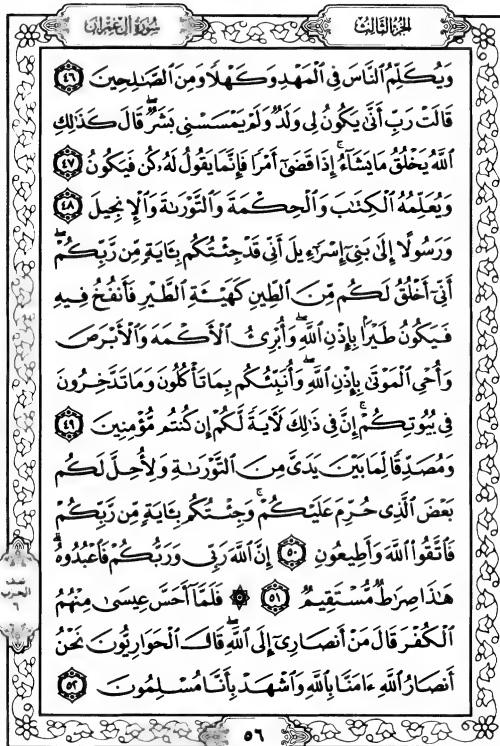 سُورَةُ آلِ عِمْرَانَ
الجُزْءُ الثَّالِثُ
وَيُكَلِّمُ ٱلنَّاسَ فِي ٱلْمَهْدِ وَكَهْلًا وَمِنَ ٱلصَّٰلِحِينَ ٤٦
قَالَتْ رَبِّ أَنَّىٰ يَكُونُ لِي وَلَدٌ وَلَمْ يَمْسَسْنِي بَشَرٌۖ قَالَ كَذَٰلِكِ
ٱللَّهُ يَخْلُقُ مَا يَشَآءُۚ إِذَا قَضَىٰٓ أَمْرًا فَإِنَّمَا يَقُولُ لَهُۥ كُن فَيَكُونُ ٤٧
وَيُعَلِّمُهُ ٱلْكِتَٰبَ وَٱلْحِكْمَةَ وَٱلتَّوْرَىٰةَ وَٱلْإِنجِيلَ ٤٨
وَرَسُولًا إِلَىٰ بَنِيٓ إِسْرَٰٓءِيلَ أَنِّي قَدْ جِئْتُكُم بِـَٔايَةٍ مِّن رَّبِّكُمْۖ
أَنِّيٓ أَخْلُقُ لَكُم مِّنَ ٱلطِّينِ كَهَيْـَٔةِ ٱلطَّيْرِ فَأَنفُخُ فِيهِ
فَيَكُونُ طَيْرًۢا بِإِذْنِ ٱللَّهِۖ وَأُبْرِئُ ٱلْأَكْمَهَ وَٱلْأَبْرَصَ
وَأُحْيِ ٱلْمَوْتَىٰ بِإِذْنِ ٱللَّهِۖ وَأُنَبِّئُكُم بِمَا تَأْكُلُونَ وَمَا تَدَّخِرُونَ
فِي بُيُوتِكُمْۚ إِنَّ فِي ذَٰلِكَ لَـَٔايَةً لَّكُمْ إِن كُنتُم مُّؤْمِنِينَ ٤٩
وَمُصَدِّقًا لِّمَا بَيْنَ يَدَيَّ مِنَ ٱلتَّوْرَىٰةِ وَلِأُحِلَّ لَكُم
بَعْضَ ٱلَّذِي حُرِّمَ عَلَيْكُمْۚ وَجِئْتُكُم بِـَٔايَةٍ مِّن رَّبِّكُمْ
فَٱتَّقُوا۟ ٱللَّهَ وَأَطِيعُونِ ٥٠ إِنَّ ٱللَّهَ رَبِّي وَرَبُّكُمْ فَٱعْبُدُوهُۗ
هَٰذَا صِرَٰطٌ مُّسْتَقِيمٌ ٥١ ۞ فَلَمَّآ أَحَسَّ عِيسَىٰ مِنْهُمُ
ٱلْكُفْرَ قَالَ مَنْ أَنصَارِيٓ إِلَى ٱللَّهِۖ قَالَ ٱلْحَوَارِيُّونَ نَحْنُ
أَنصَارُ ٱللَّهِ ءَامَنَّا بِٱللَّهِ وَٱشْهَدْ بِأَنَّا مُسْلِمُونَ ٥٢
نصف
الحزب
٦
٥٦